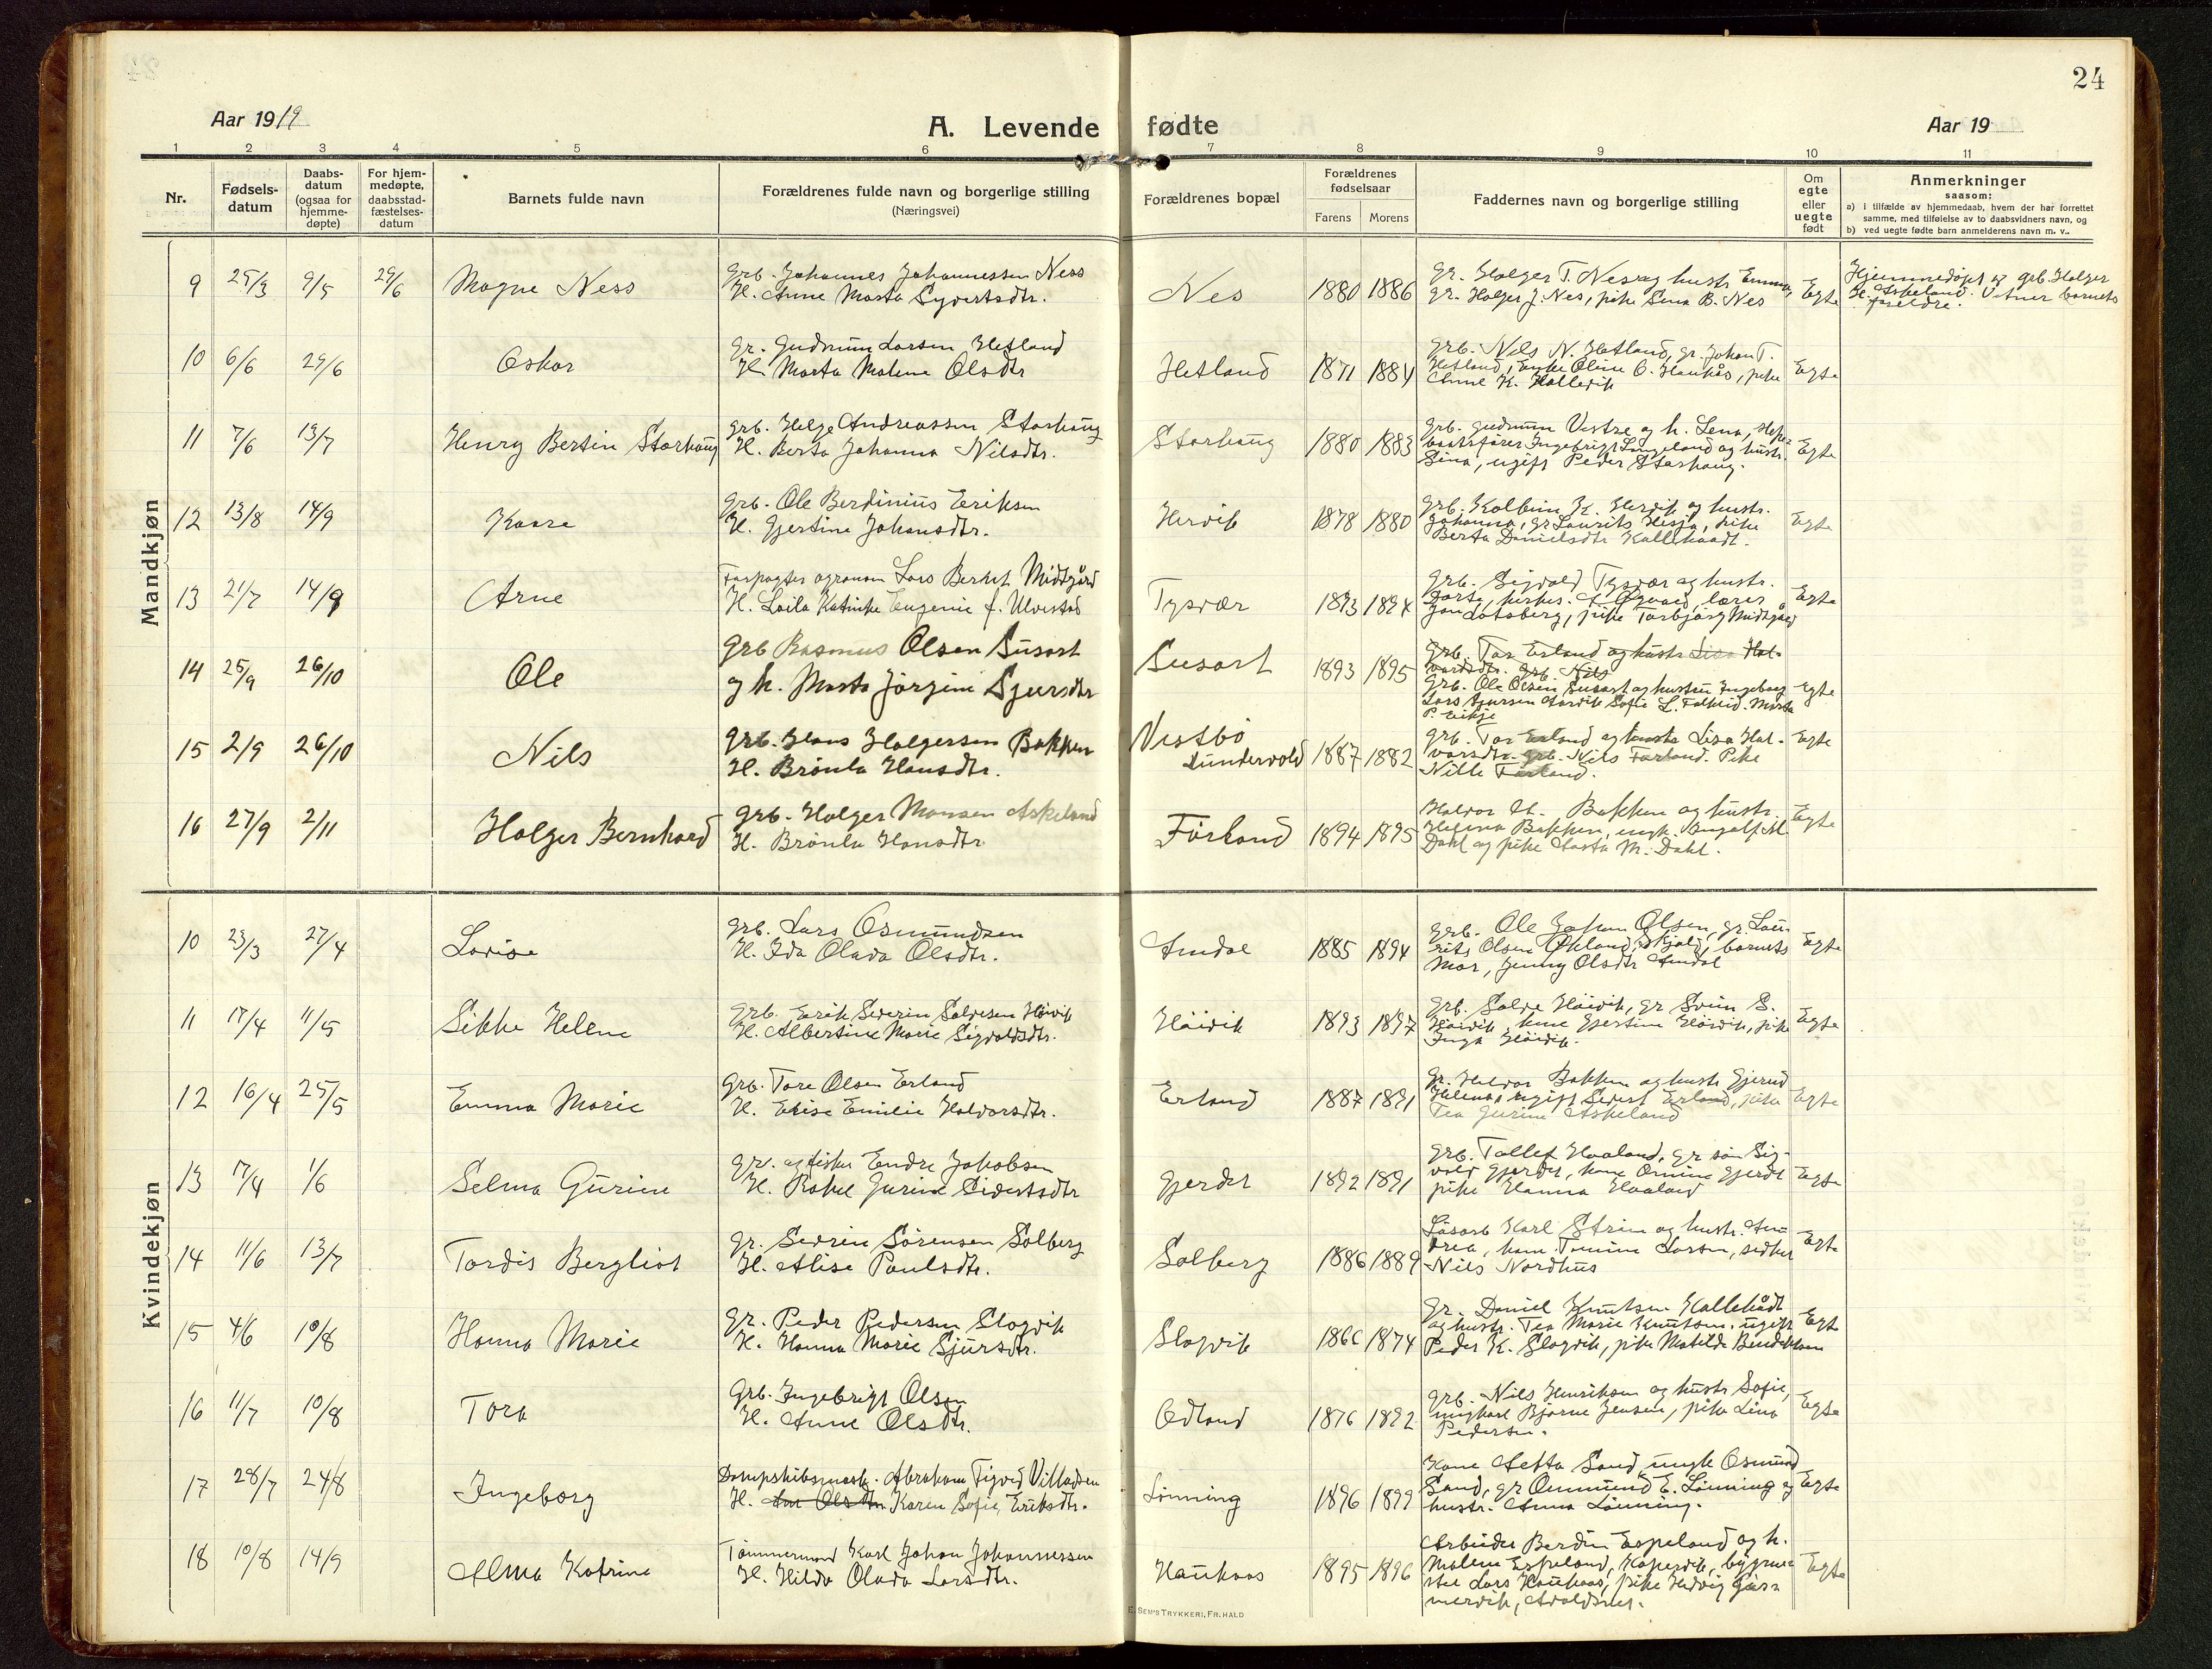 24
Aar 1919
A. Levende fødte
Aar 19
1 2 3 4 5 6 7 8 9 10 11
Nr.
Fødsels-
datum
Daabs-
datum
(ogsaa for
hjemme-
døpte)
For hjem-
medøpte,
daabsstad-
fæstelses-
datum
Barnets fulde navn
Forældrenes fulde navn og borgerlige stilling
(Næringsvei)
Forældrenes bopæl
Forældrenes
fødselsaar
Farens Morens
Faddernes navn og borgerlige stilling
Om
egte
eller
uegte
født
Anmerkninger
saasom:
a) i tilfælde av hjemmedaab, hvem der har forrettet
samme, med tilføielse av to daabsvidners navn, og
b) ved uegte fødte barn anmelderens navn m. v..
Mandkjøn
9 25/3 9/5 29/6 Magne Ness
Grb. Johannes Johannessen Ness
H. Anne Marta Syvertsdtr.
Nes 1880 1886
Gr. Holger T. Nes og hustr Emma,
gr. Holger J. Nes, pike Lena B. Nes
Egte
Hjemmedøpt v grb. Holger
H. Askeland. Vitner barnets
foreldre.
10 6/6 29/6 Oskar
Gr. Gudmun Larsen Hetland
H. Marta Malene Olsdtr
Hetland 1871 1884
Grb. Nils N. Hetland, gr. Johan T.
Hetland, Enke Oline O. Haukås, pike
Anne K. Hallevik
Egte
11 7/6 13/7 Henry Bertin Storhaug
Grb. Helge Andreassen Storhaug
H. Berta Johanna Nilsdtr.
Storhaug 1880 1883
Grb. Gudmun Vestre og h. Lena,
Ingebrigt Langeland og hustr.
Sina, ugift Peder Storhaug.
Egte
12 13/8 14/9 Kaare
Grb. Ole Berdinius Eriksen
H. Gjertine Johansdtr.
Hervik 1878 1880
Grb. Kolbein K. Hervik og hustr.
Johanna, gr Laurits Hesja, pike
Berta Danielsdtr Kallekaadt.
Egte
13 21/7 14/9 Arne
Forpagter agronom Lars Berhet Midtgård
H. Laila Katinke Eugenie f. Ulvestad
Tysvær 1893 1894
Grb. Sigvald Tysvær og hustr.
Dorte,
Jon Lotsberg, pike Torbjørg Midtgård
Egte
14 25/9 26/10 Ole
Grb Rasmus Olsen Susort
og h. Marta Jørgine Sjursdtr
Susort 1893 1895
Grb. Tor Erland og hustr Lisa Hal-
vardsdtr. Grb. Nils
Grb. Ole Olsen Susort og hustru Ingeborg
Lars Sjursen Aarvik Sofie L. Falkeid. Marta
P. Eikje
Egte
15 2/9 26/10 Nils
Grb. Hans Holgersen Bakken
H. Brönla Hansdtr.
Vestbö
Sundervold 1887 1882
Grb. Tor Erland og hustr Lisa Hal-
varsdtr. Grb. Nils Førland. Pike
Nille Førland.
Egte
16 27/9 2/11 Holger Bernhard
Grb. Holger Monsen Askeland
H. Brönla Hansdtr.
Förland 1894 1895
Halvor H. Bakken og hustr.
Helena Bakken, ungk. Ingolf M.
Dahl og pike Aasta M. Dahl.
Egte
Kvindekjøn
10 23/3 27/4 Lovise
Grb. Lars Osmundsen
H. Ida Olava Olsdtr.
Amdal 1885 1894
Grb. Ole Johan Olsen, gr. Lau-
rits Olsen Økland, Skjold, barnets
mor, Jenny Olsdtr Amdal
Egte
11 17/4 11/5 Sikke Helene
Grb. Erik Severin Salvesen Høivik
H. Albertine Marie Sigvaldsdtr.
Höivik 1893 1897
Grb. Salve Höivik, gr Svein S.
Höivik, kone Gjertine Höivik, pike
Inga Höivik.
Egte
12 16/4 25/5 Emma Marie
Grb. Tore Olsen Erland
H. Elise Emilie Halvorsdtr.
Erland 1887 1891
Gr. Halvor Bakken og hustr Gjerud
Helena, ugift Sivert Erland, pike
Tea Gurine Askeland
Egte
13 17/4 1/6 Selma Gurine
Gr. og fisker Endre Jakobsen
H. Rakel Gurine Sivertsdtr
Gjerdet 1892 1891
Grb. Tollef Haaland, gr søn Sig-
vald Gjerdet, kone Omine Gjerdet
pike Hanna Haaland
Egte
14 11/6 13/7 Tordis Bergliot
Gr. Severin Sörensen Solberg
H. Alise Paulsdtr.
Solberg 1886 1889
Lösarb Karl Strøm og hustr. An-
drea, kone Tomine Larsen, sedker
Nils Nordhus
Egte
15 4/6 10/8 Hanna Marie
Gr. Peder Pedersen Slogvik
H. Hanna Marie Sjursdtr.
Slogvik 1866 1874
Gr. Daniel Knutsen Kallekådt
og hustr. Tea Marie Knutsen, ugift
Peder K. Slogvik, pike Matilde Bendiksen
Egte
16 11/7 10/8 Tora
Grb. Ingebrigt Olsen
H. Anne Olsdtr.
Odland 1876 1892
Grb. Nils Henriksen og hustr Sofie,
ungkarl Bjarne Jensen, pike Lina
Pedersen.
Egte
17 28/7 24/8 Ingeborg
Dampskibsmask. Abraham Sigvd Villadsen
H. Ane Olsdtr Karen Sofie Eriksdtr.
Lønning 1896 1899
Kone Aetta Sand ungk Osmund
Sand, gr Ommund E. Lönning og
hustr. Anna Lönning.
Egte
18 10/8 14/9 Alma Katrine
Tömmermand Karl Johan Johannessen
H. Hilda Olava Larsdtr.
Haukaas 1895 1896
Arbeider Berdin Espeland og h.
Malene Espeland, Kopervik, bygme-
ster Lars Haukaas, pike Hedvig
mervik, Avaldsnes.
Egte
E. SEM'S TRYKKERI, FR.HALD